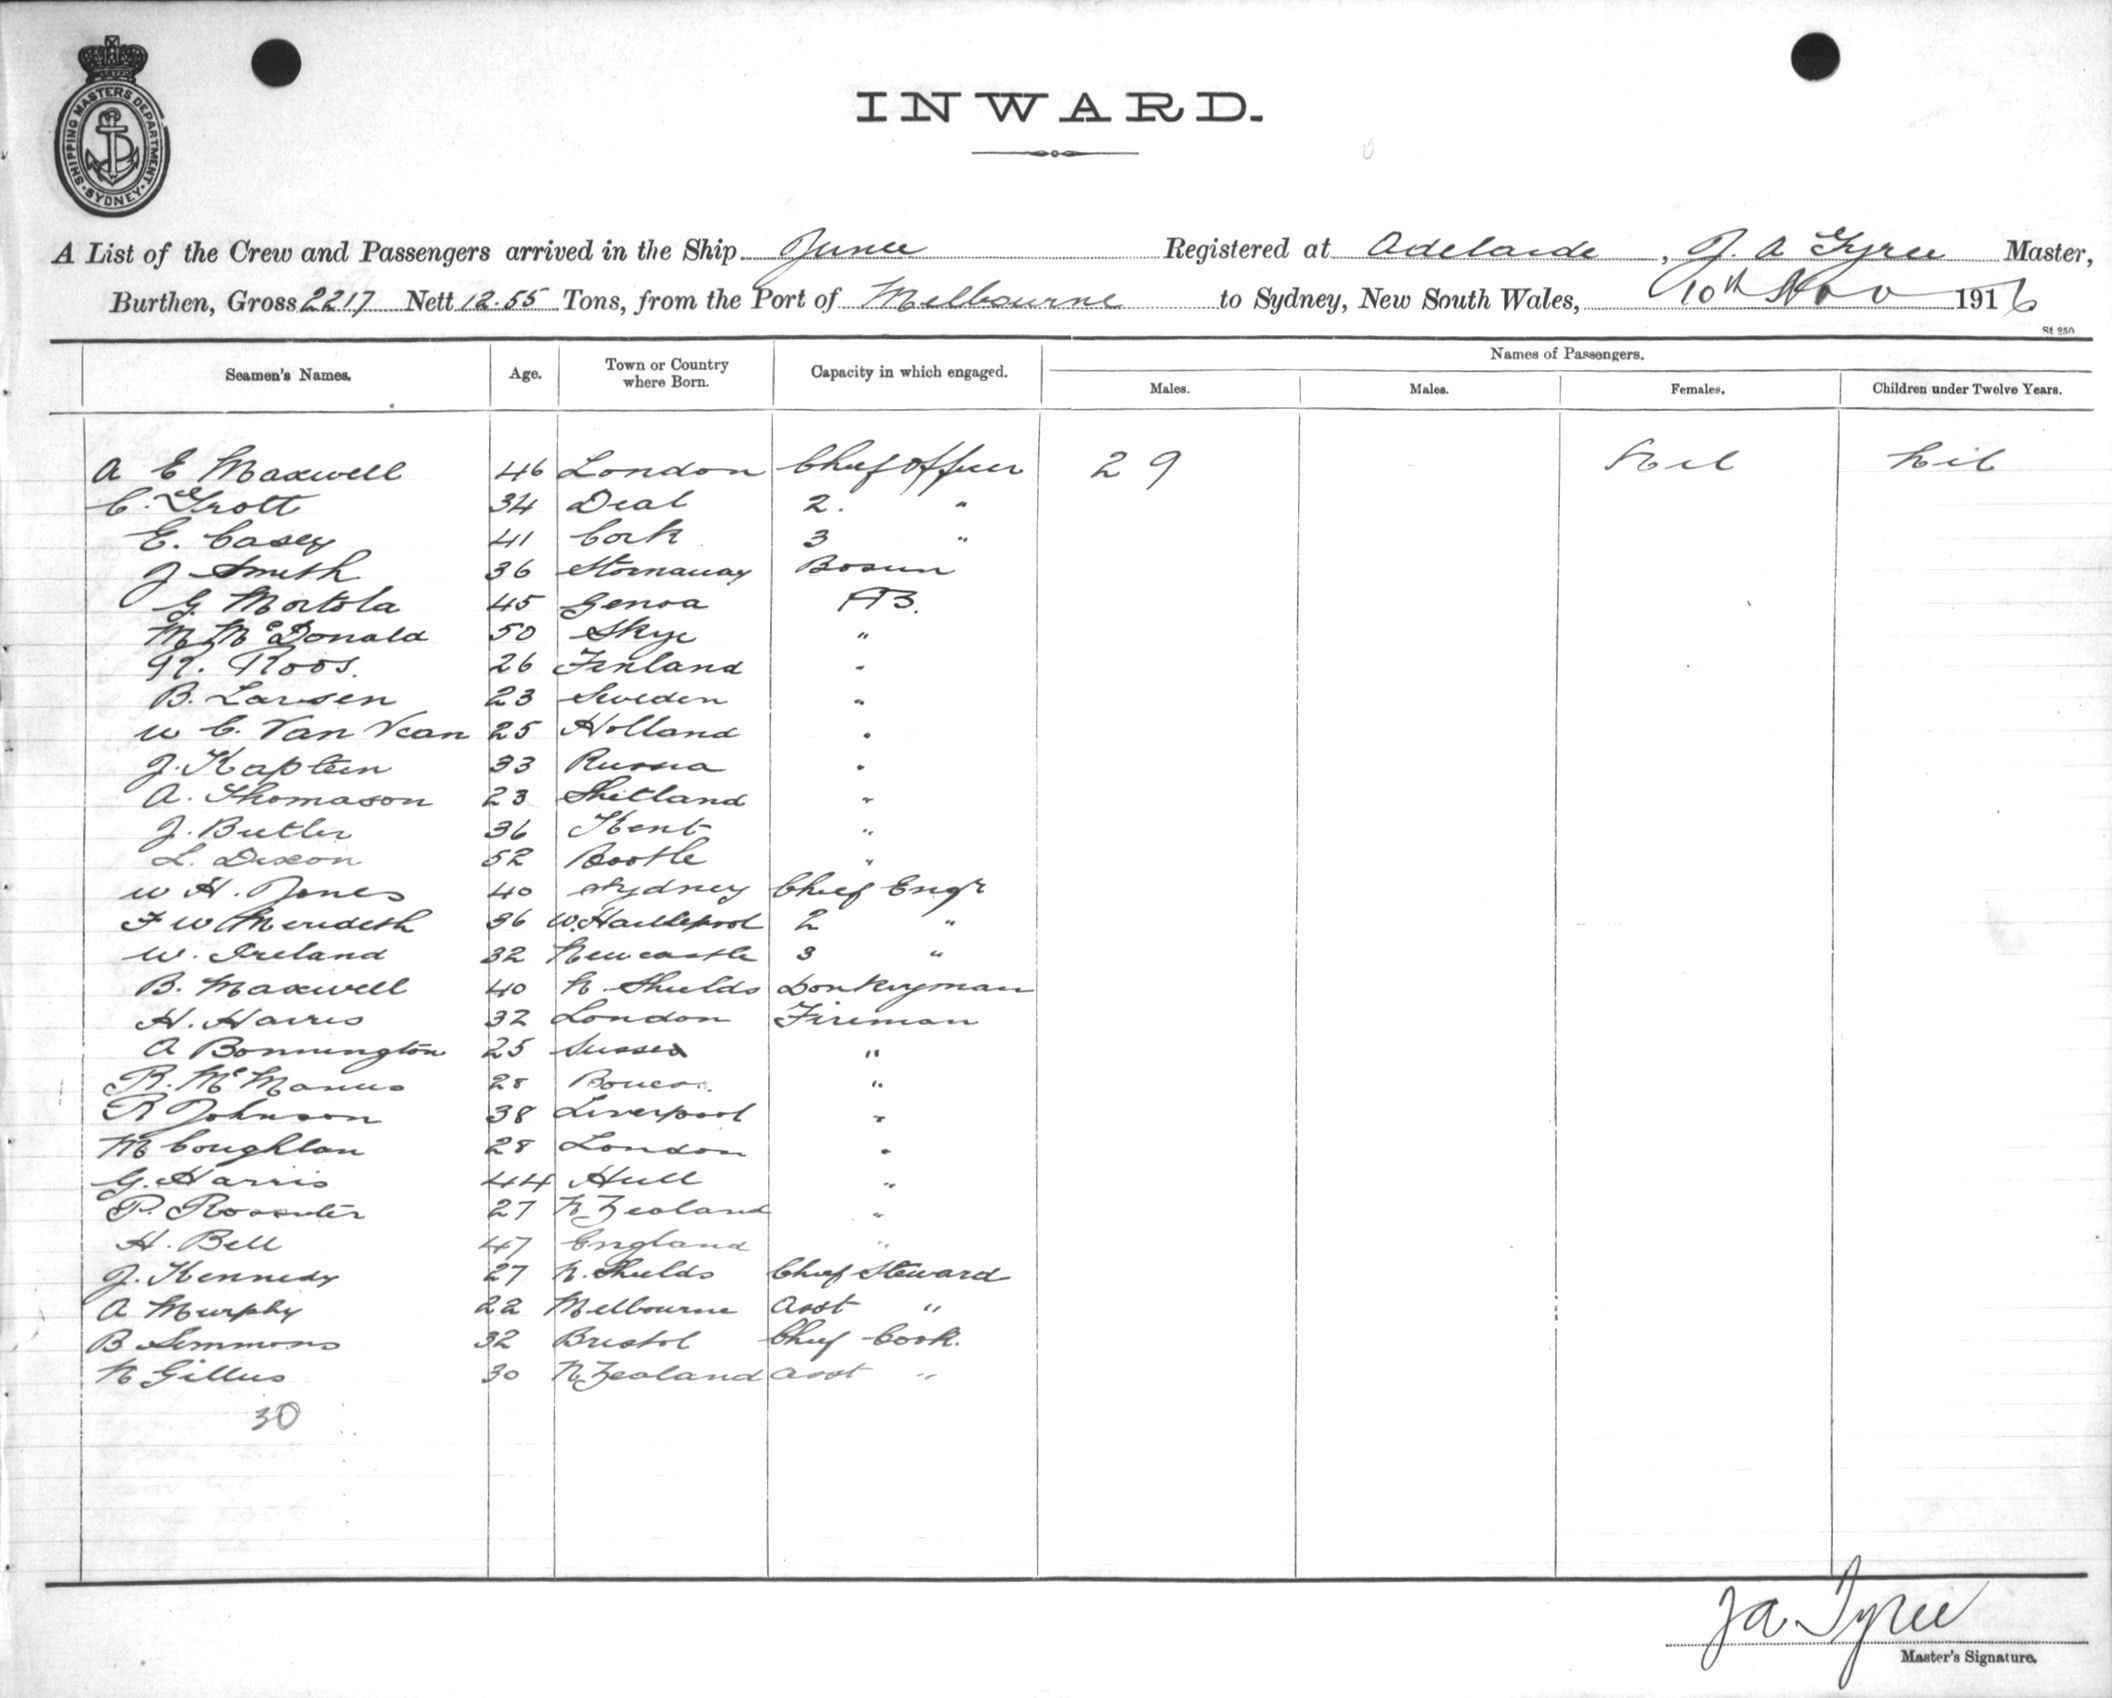 SHIPPING MASTERS DEPARTMENT
SYDNEY
INWARD.
A List of the Crew and Passengers arrived in the Ship Junee Registered at Adelaide, J. A Tyree Master,
Burthen, Gross 2217 Nett 12.55 Tons, from the Port of Melbourne to Sydney, New South Wales, 10th Nov 1916
St 250
Seamen's Names. Age. Town or Country where Born. Capacity in which engaged. Names of Passengers.
Males. Males. Females. Children under Twelve Years.
A E Maxwell 46 London Chief Officer 29 Nil Nil
C. Trott 34 Deal 2. "
E. Casey 41 Cork 3 "
J Smith 36 Stornaway Bosun
G. Mortola 45 Genoa AB.
M McDonald 50 Skye "
R. Roos. 26 Finland "
B. Larsen 23 Sweden "
W C. Van Vean 25 Holland "
J. Kaptein 33 Russia "
A. Thomason 23 Shetland "
J. Butler 36 Kent "
L. Dixon 52 Bootle "
W H. Jones 40 Sydney Chief Engr
F W Merideth 36 W. Hartlepool 2 "
W. Ireland 32 Newcastle 3 "
B. Maxwell 40 N. Shields Donkeyman
H. Harris 32 London Fireman
A Bonnington 25 Sussex "
R. McManus 28 "
R Johnson 38 Liverpool "
M Coughlan 28 London "
G. Harris 44 Hull "
P. Rossiter 27 N. Zealand "
H. Bell 47 England "
J. Kennedy 27 N. Shields Chief Steward
A Murphy 22 Melbourne Asst "
B Simmons 32 Bristol Chief Cook.
N Gillies 30 N. Zealand Asst "
30
J A Tyree
Master's Signature.